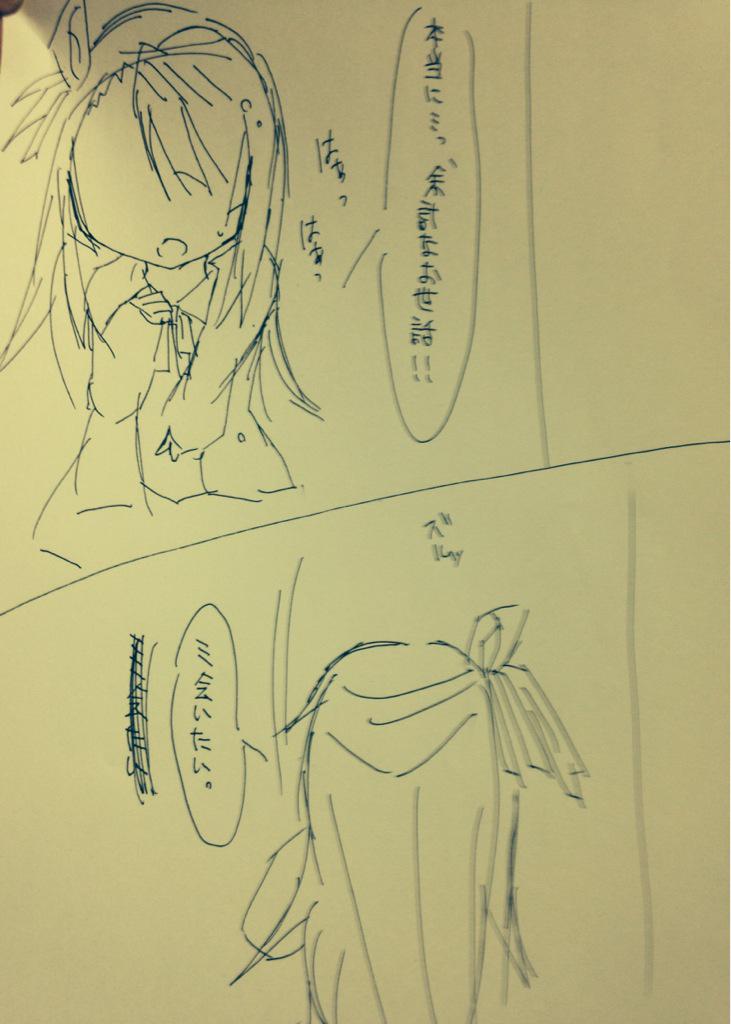 本当にミっ余計なお世話!!
はぁっ
はぁっ
ズルッ
ミ会いたい。